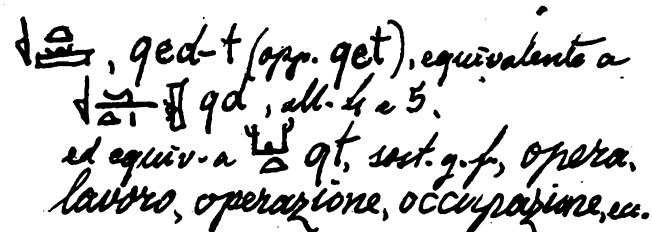 , qed-t (opp. qet), equivalente a
qd, all. 4 e 5,
ed equiv. a qt, sost. g. f., opera,
lavoro, operazione, occupazione, ecc.